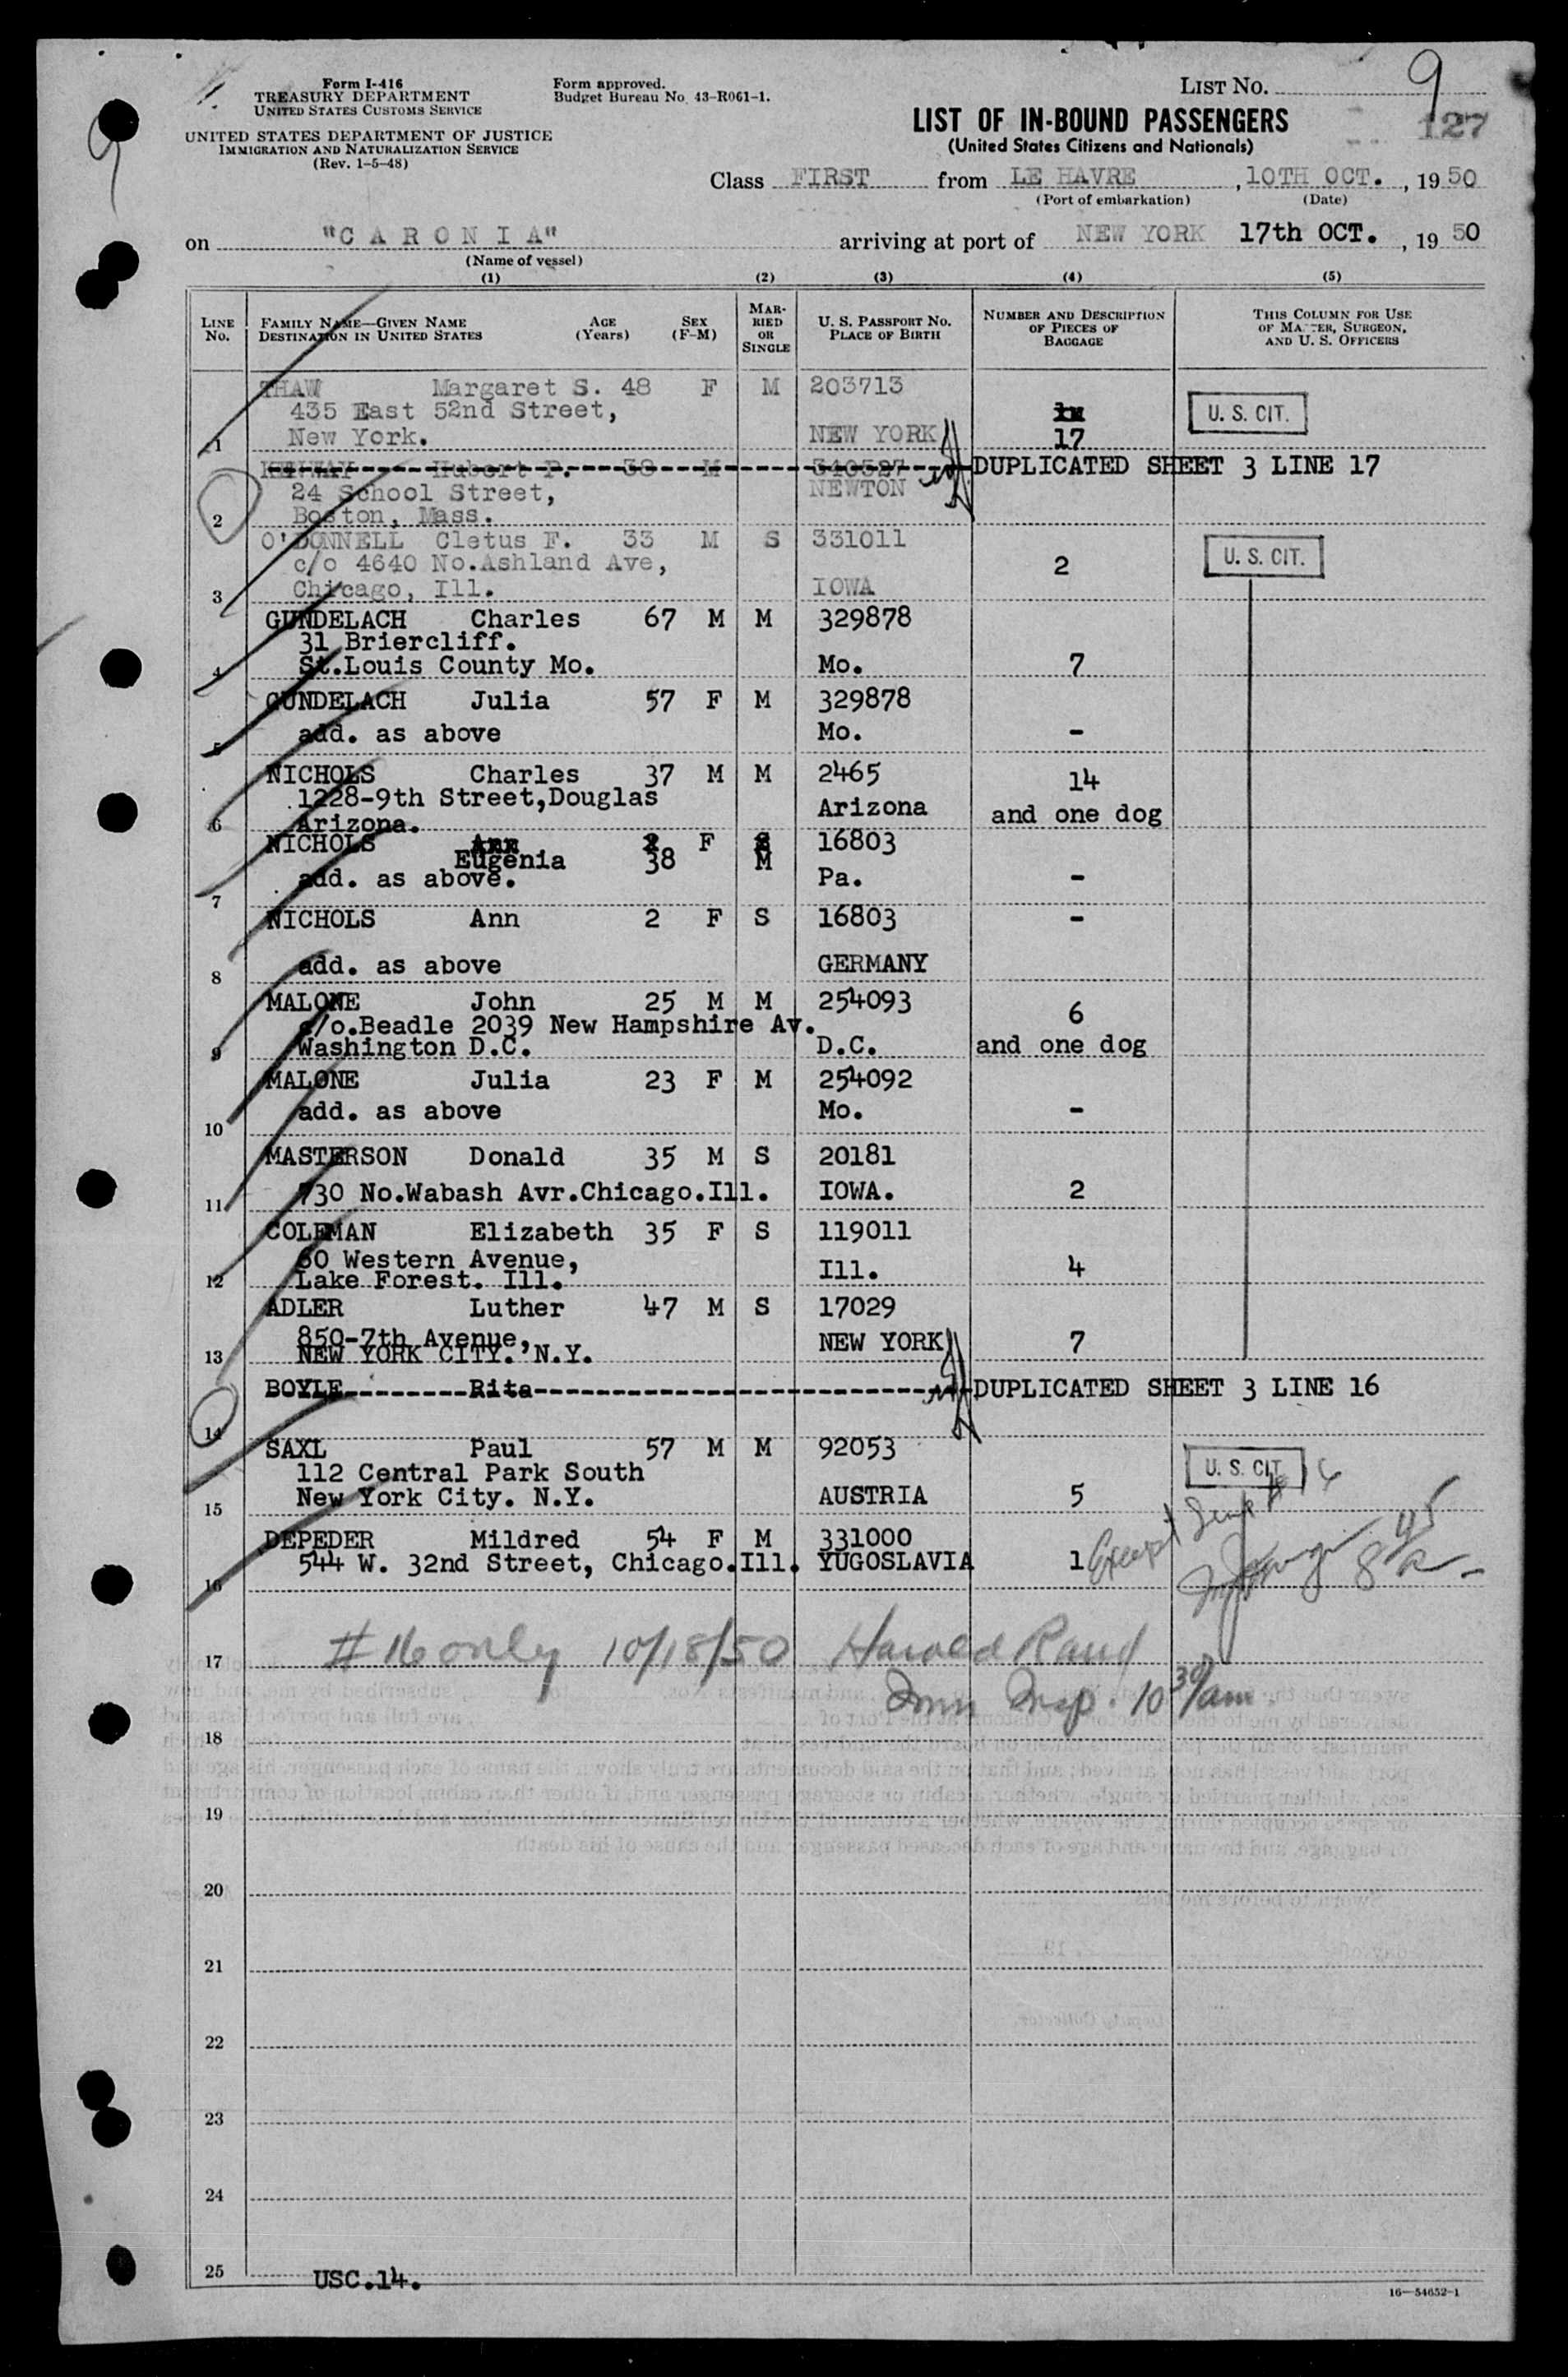 Form I-416
TREASURY DEPARTMENT
UNITED STATES CUSTOMS SERVICE
UNITED STATES DEPARTMENT OF JUSTICE
IMMIGRATION AND NATURALIZATION SERVICE
(Rev. 1-5-48)
Form approved.
Budget Bureau No. 43-R061-1.
LIST NO. 9
127
9
LIST OF IN-BOUND PASSENGERS
(United States Citizens and Nationals)
Class FIRST from LE HAVRE, 10TH OCT., 1950
(Port of embarkation) (Date)
on "CARONIA" arriving at port of NEW YORK 17th OCT., 1950
(Name of vessel)
(1) (2) (3) (4) (5)
LINE NO. FAMILY NAME—GIVEN NAME DESTINATION IN UNITED STATES AGE (Years) SEX (F-M) MARRIED OR SINGLE U. S. PASSPORT NO. PLACE OF BIRTH NUMBER AND DESCRIPTION OF PIECES OF BAGGAGE THIS COLUMN FOR USE OF MASTER, SURGEON, AND U. S. OFFICERS
THAW Margaret S. 48 F M 203713
435 East 52nd Street, U. S. CIT.
1 New York. NEW YORK 17
KELWAY Hubert P. 38 M 340527 DUPLICATED SHEET 3 LINE 17
24 School Street, NEWTON
2 Boston, Mass.
O'DONNELL Cletus F. 33 M S 331011
c/o 4640 No.Ashland Ave, 2 U. S. CIT.
3 Chicago, Ill. IOWA
GUNDELACH Charles 67 M M 329878
31 Briercliff.
4 St.Louis County Mo. Mo. 7
GUNDELACH Julia 57 F M 329878
5 add. as above Mo. -
NICHOLS Charles 37 M M 2465 14
1228-9th Street,Douglas Arizona and one dog
6 Arizona.
NICHOLS Ann 2 F S 16803
Eugenia 38 M
7 add. as above. Pa. -
NICHOLS Ann 2 F S 16803 -
8 add. as above GERMANY
MALONE John 25 M M 254093 6
c/o.Beadle 2039 New Hampshire Av.
9 Washington D.C. D.C. and one dog
MALONE Julia 23 F M 254092
10 add. as above Mo. -
MASTERSON Donald 35 M S 20181
11 730 No.Wabash Avr.Chicago.Ill. IOWA. 2
COLEMAN Elizabeth 35 F S 119011
60 Western Avenue, Ill. 4
12 Lake Forest. Ill.
ADLER Luther 47 M S 17029
850-7th Avenue, NEW YORK 7
13 NEW YORK CITY. N.Y.
BOYLE Rita DUPLICATED SHEET 3 LINE 16
14
SAXL Paul 57 M M 92053
112 Central Park South U. S. CIT.
15 New York City. N.Y. AUSTRIA 5
DEPEDER Mildred 54 F M 331000
16 544 W. 32nd Street, Chicago.Ill. YUGOSLAVIA 1
Except
17 #16 only 10/18/50 Harold Rand
Imm Insp. 10 30/am
18
19
20
21
22
23
24
25 USC.14.
16—54652-1